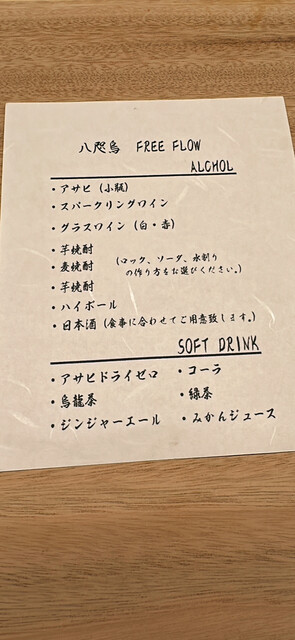 八咫烏 FREE FLOW
ALCHOL
・アサヒ（小瓶）
・スパークリングワイン
・グラスワイン（白・赤）
・芋焼酎
・麦焼酎 （ロック、ソーダ、水割り
の作り方をお選びください。）
・芋焼酎
・ハイボール
・日本酒（食事に合わせてご用意致します。）
SOFT DRINK
・アサヒドライゼロ ・コーラ
・烏龍茶 ・緑茶
・ジンジャーエール ・みかんジュース